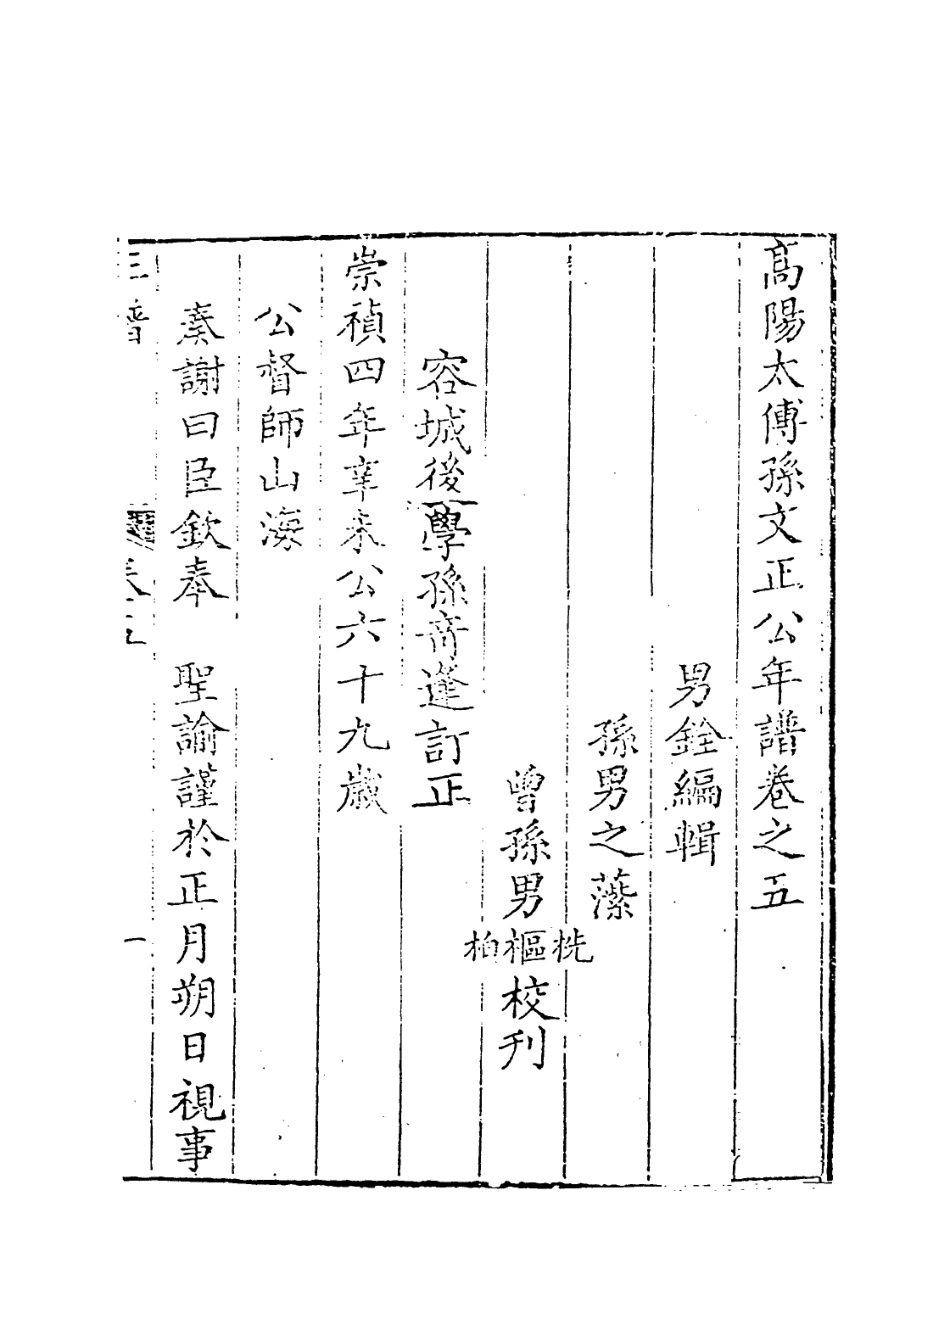 高陽太傅孫文正公年譜卷之五
男銓編輯
孫男之藻
曾孫男桄樞柏校刊
容城後學孫竒逢訂正
崇禎四年辛未公六十九歲
公督師山海
奏謝曰臣欽奉　聖諭謹於正月朔日視事
年譜　卷五　一